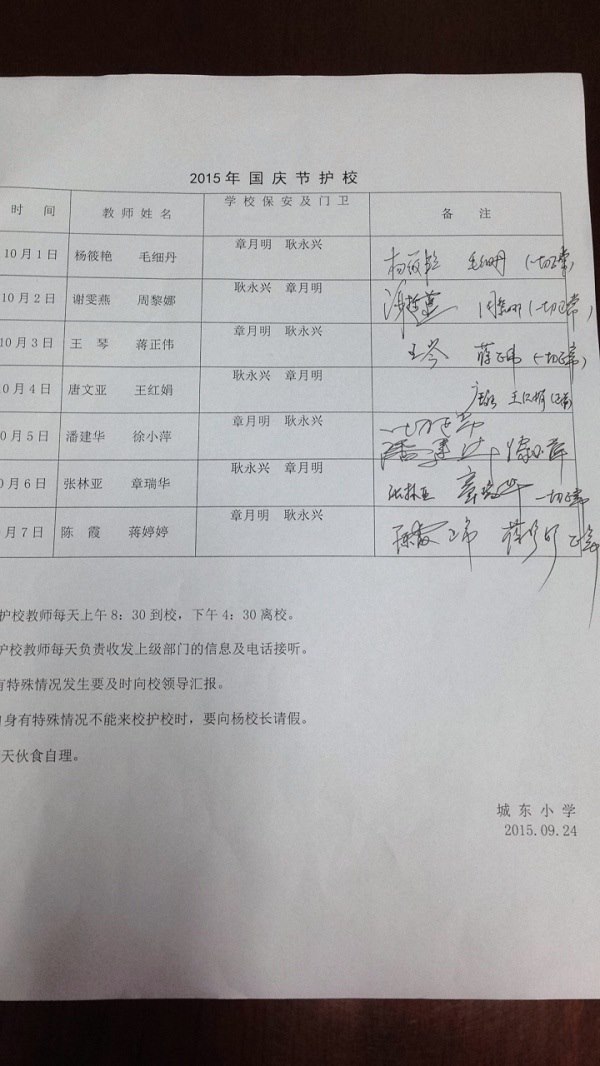 2015年国庆节护校
时间 教师姓名 学校保安及门卫 备注
10月1日 杨筱艳 毛细丹 章月明 耿永兴 杨筱艳 毛细丹 (一切正常)
10月2日 谢雯燕 周黎娜 耿永兴 章月明 (一切正常)
10月3日 王琴 蒋正伟 章月明 耿永兴 王琴 蒋正伟 (一切正常)
10月4日 唐文亚 王红娟 耿永兴 章月明 王红娟 (正常)
0月5日 潘建华 徐小萍 章月明 耿永兴 一切正常
潘建华 徐小萍
0月6日 张林亚 章瑞华 耿永兴 章月明 张林亚 章瑞华 一切正常
月7日 陈霞 蒋婷婷 章月明 耿永兴 陈霞 正常 蒋婷婷 正常
护校教师每天上午8:30到校，下午4:30离校。
护校教师每天负责收发上级部门的信息及电话接听。
有特殊情况发生要及时向校领导汇报。
自身有特殊情况不能来校护校时，要向杨校长请假。
天伙食自理。
城东小学
2015.09.24